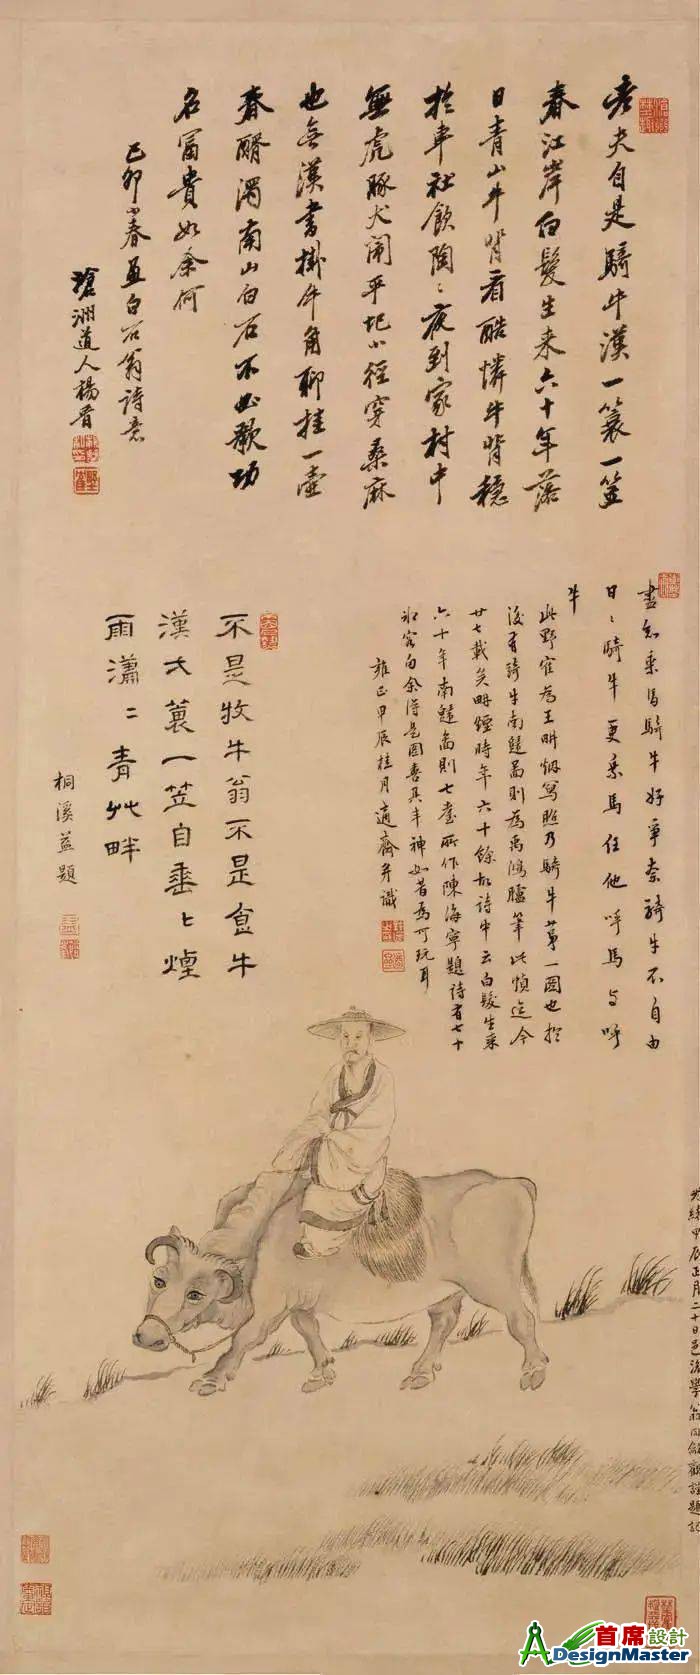 老夫自是騎牛漢一蓑一笠
春江岸白髮生来六十年落
日青山牛背看酷憐牛背穩
於車社飲陶〻夜到家村中
無虎豚犬鬧平地小徑穿桑麻
也無漢書掛牛角聊挂一壺
春醑濁南山白石不必歌功
名富貴如余何
己卯小春畫白石翁詩意
瑲洲道人楊晋
盡知乘馬騎牛好爭奈騎牛不自由
日〻騎牛更乘馬任他呼馬与呼
牛
此野寉為王畊烟寫照乃騎牛第一圖也於
後有騎牛南盤圖則為禹鴻臚筆此幀迄今
廿七載矣畊煙時年六十餘故詩中云白髮生来
六十年南圖則七耋所作陳海寧題詩有七十
冰容句余得是圖喜其丰神如昔為可玩耳
雍正甲辰桂月適齋并識
不是牧牛翁不是飯牛
漢弌蓑一笠自垂〻煙
雨瀟〻青艸畔
桐溪益題
光緒甲辰正月二十日邑後學翁同龢觀謹題記
首席設計
ADesignMaster